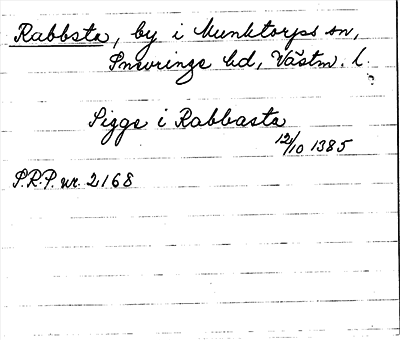 Rabbsta, by i Munktorps sn,
Snevringe hd, Västm. l.
?
Sigge i Rabbasta
12/10 1385
S.R.P. nr. 2168